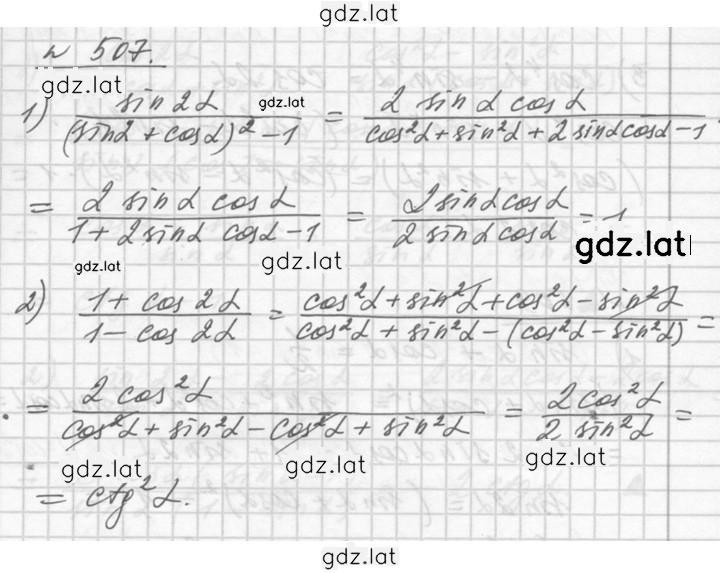 gdz.lat
№ 507.
gdz.lat
1) sin 2α / ((sin α + cos α)² − 1) = 2 sin α cos α / (cos²α + sin²α + 2 sin α cos α − 1) =
gdz.lat
= 2 sin α cos α / (1 + 2 sin α cos α − 1) = 2 sin α cos α / (2 sin α cos α) = 1
gdz.lat
gdz.lat
gdz.lat
2) (1 + cos 2α) / (1 − cos 2α) = (cos²α + sin²α + cos²α − sin²α) / (cos²α + sin²α − (cos²α − sin²α)) =
= 2 cos²α / (cos²α + sin²α − cos²α + sin²α) = 2 cos²α / (2 sin²α) =
gdz.lat
gdz.lat
gdz.lat
= ctg²α.
gdz.lat